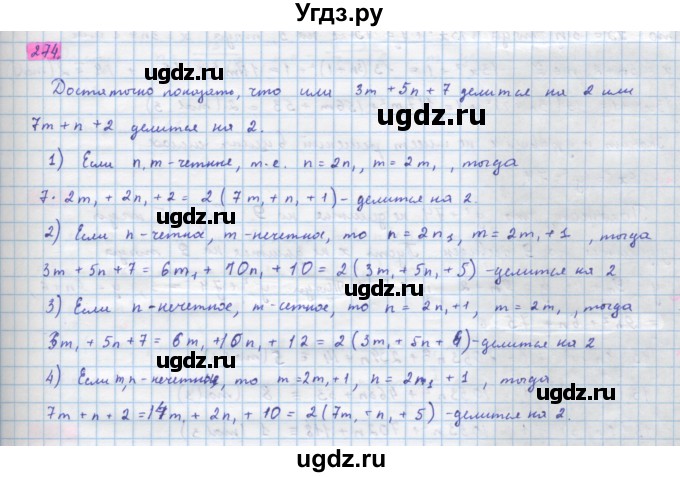 Угдз.ру
274.
Достаточно показать, что или 3m + 5n + 7 делится на 2 или
7m + n + 2 делится на 2.
1) Если n, m - четные, т.е. n = 2n₁, m = 2m₁, тогда
7 · 2m₁ + 2n₁ + 2 = 2 (7m₁ + n₁ + 1) - делится на 2.
2) Если n - четное, m - нечетное, то n = 2n₁, m = 2m₁ + 1, тогда
3m + 5n + 7 = 6m₁ + 10n₁ + 10 = 2 (3m₁ + 5n₁ + 5) - делится на 2
3) Если n - нечетное, m - четное, то n = 2n₁ + 1, m = 2m₁, тогда
3m₁ + 5n + 7 = 6m₁ + 10n₁ + 12 = 2 (3m₁ + 5n + 6) - делится на 2
4) Если m, n - нечетные, то m = 2m₁ + 1, n = 2n₁ + 1, тогда
7m + n + 2 = 14m₁ + 2n₁ + 10 = 2 (7m₁ + n₁ + 5) - делится на 2.
ugdz.ru
ugdz.ru
ugdz.ru
ugdz.ru
ugdz.ru
ugdz.ru
ugdz.ru
ugdz.ru